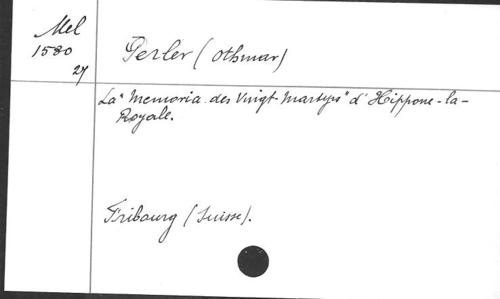 Mel
1580
27
Perler (Othmar)
La "Memoria des Vingt-Martyrs" d'Hippone-la-
Royale.
Fribourg (Suisse).